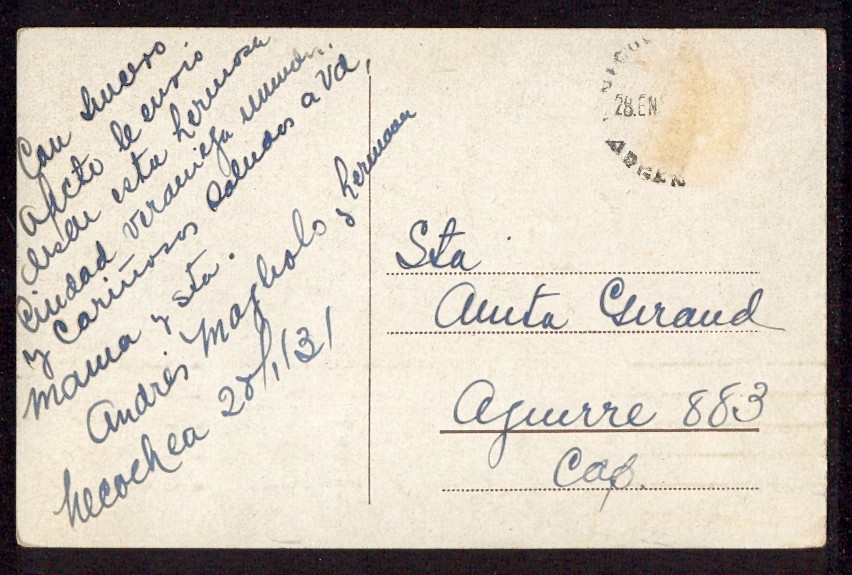 Con sincero
afecto le envio
desde esta hermosa
Ciudad veraniega
y Cariñosos Saludos a Vd,
Mama y Sta.
Andrés y hermana
Necochea 28/1/31
28.EN
ARGEN
Sta
Anita Geraud
Aguirre 883
Cap.